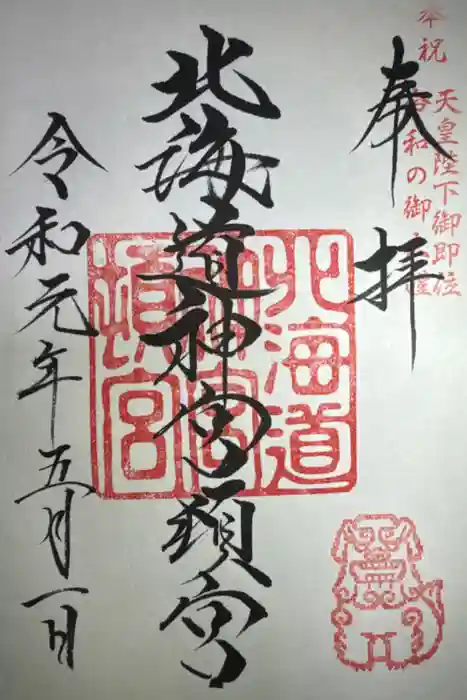 奉祝
天皇陛下御即位
奉拝
北海道神宮頓宮
北海道神宮頓宮
令和元年五月一日